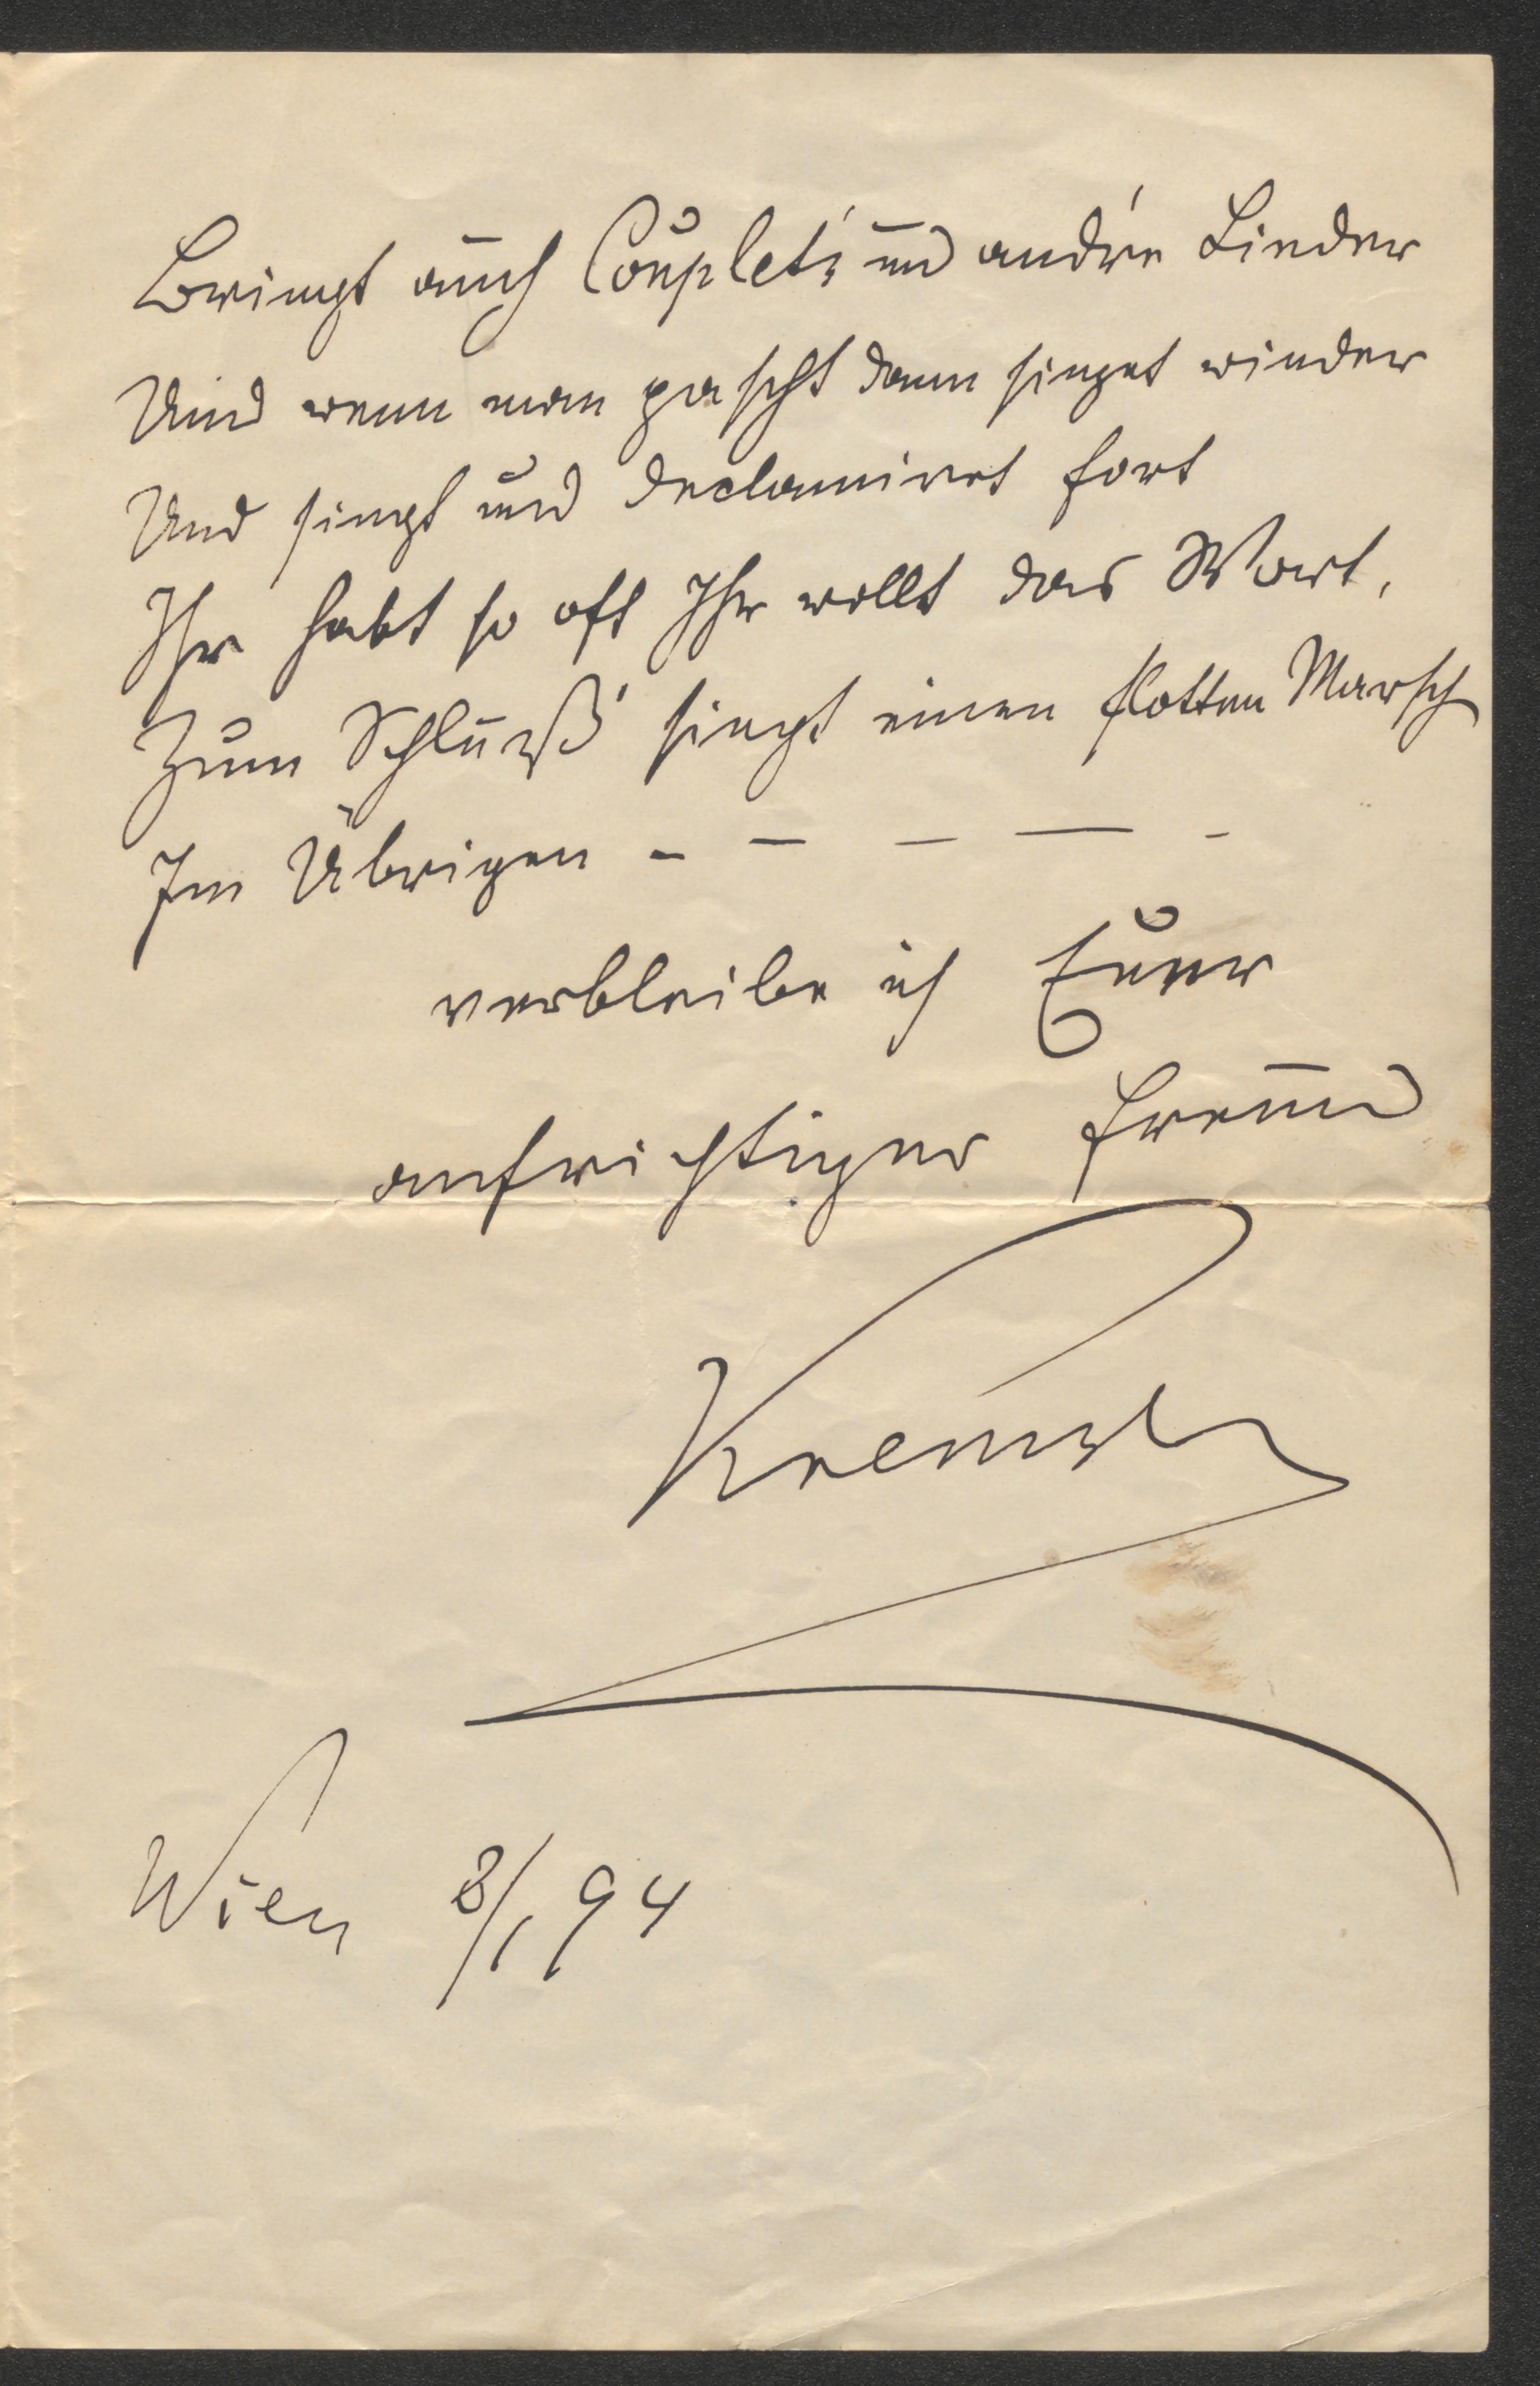 Bringt auch Couplet's und andre Lieder
Und wenn man pascht dann singet wieder
Und singt und declamiret fort
Ihr habt so oft Ihr wollt das Wort.
Zum Schluß singt einen flotten Marsch
Im Übrigen - - - - -
verbleibe ich Euer
aufrichtiger Freund
Kremser
Wien 8/1 94